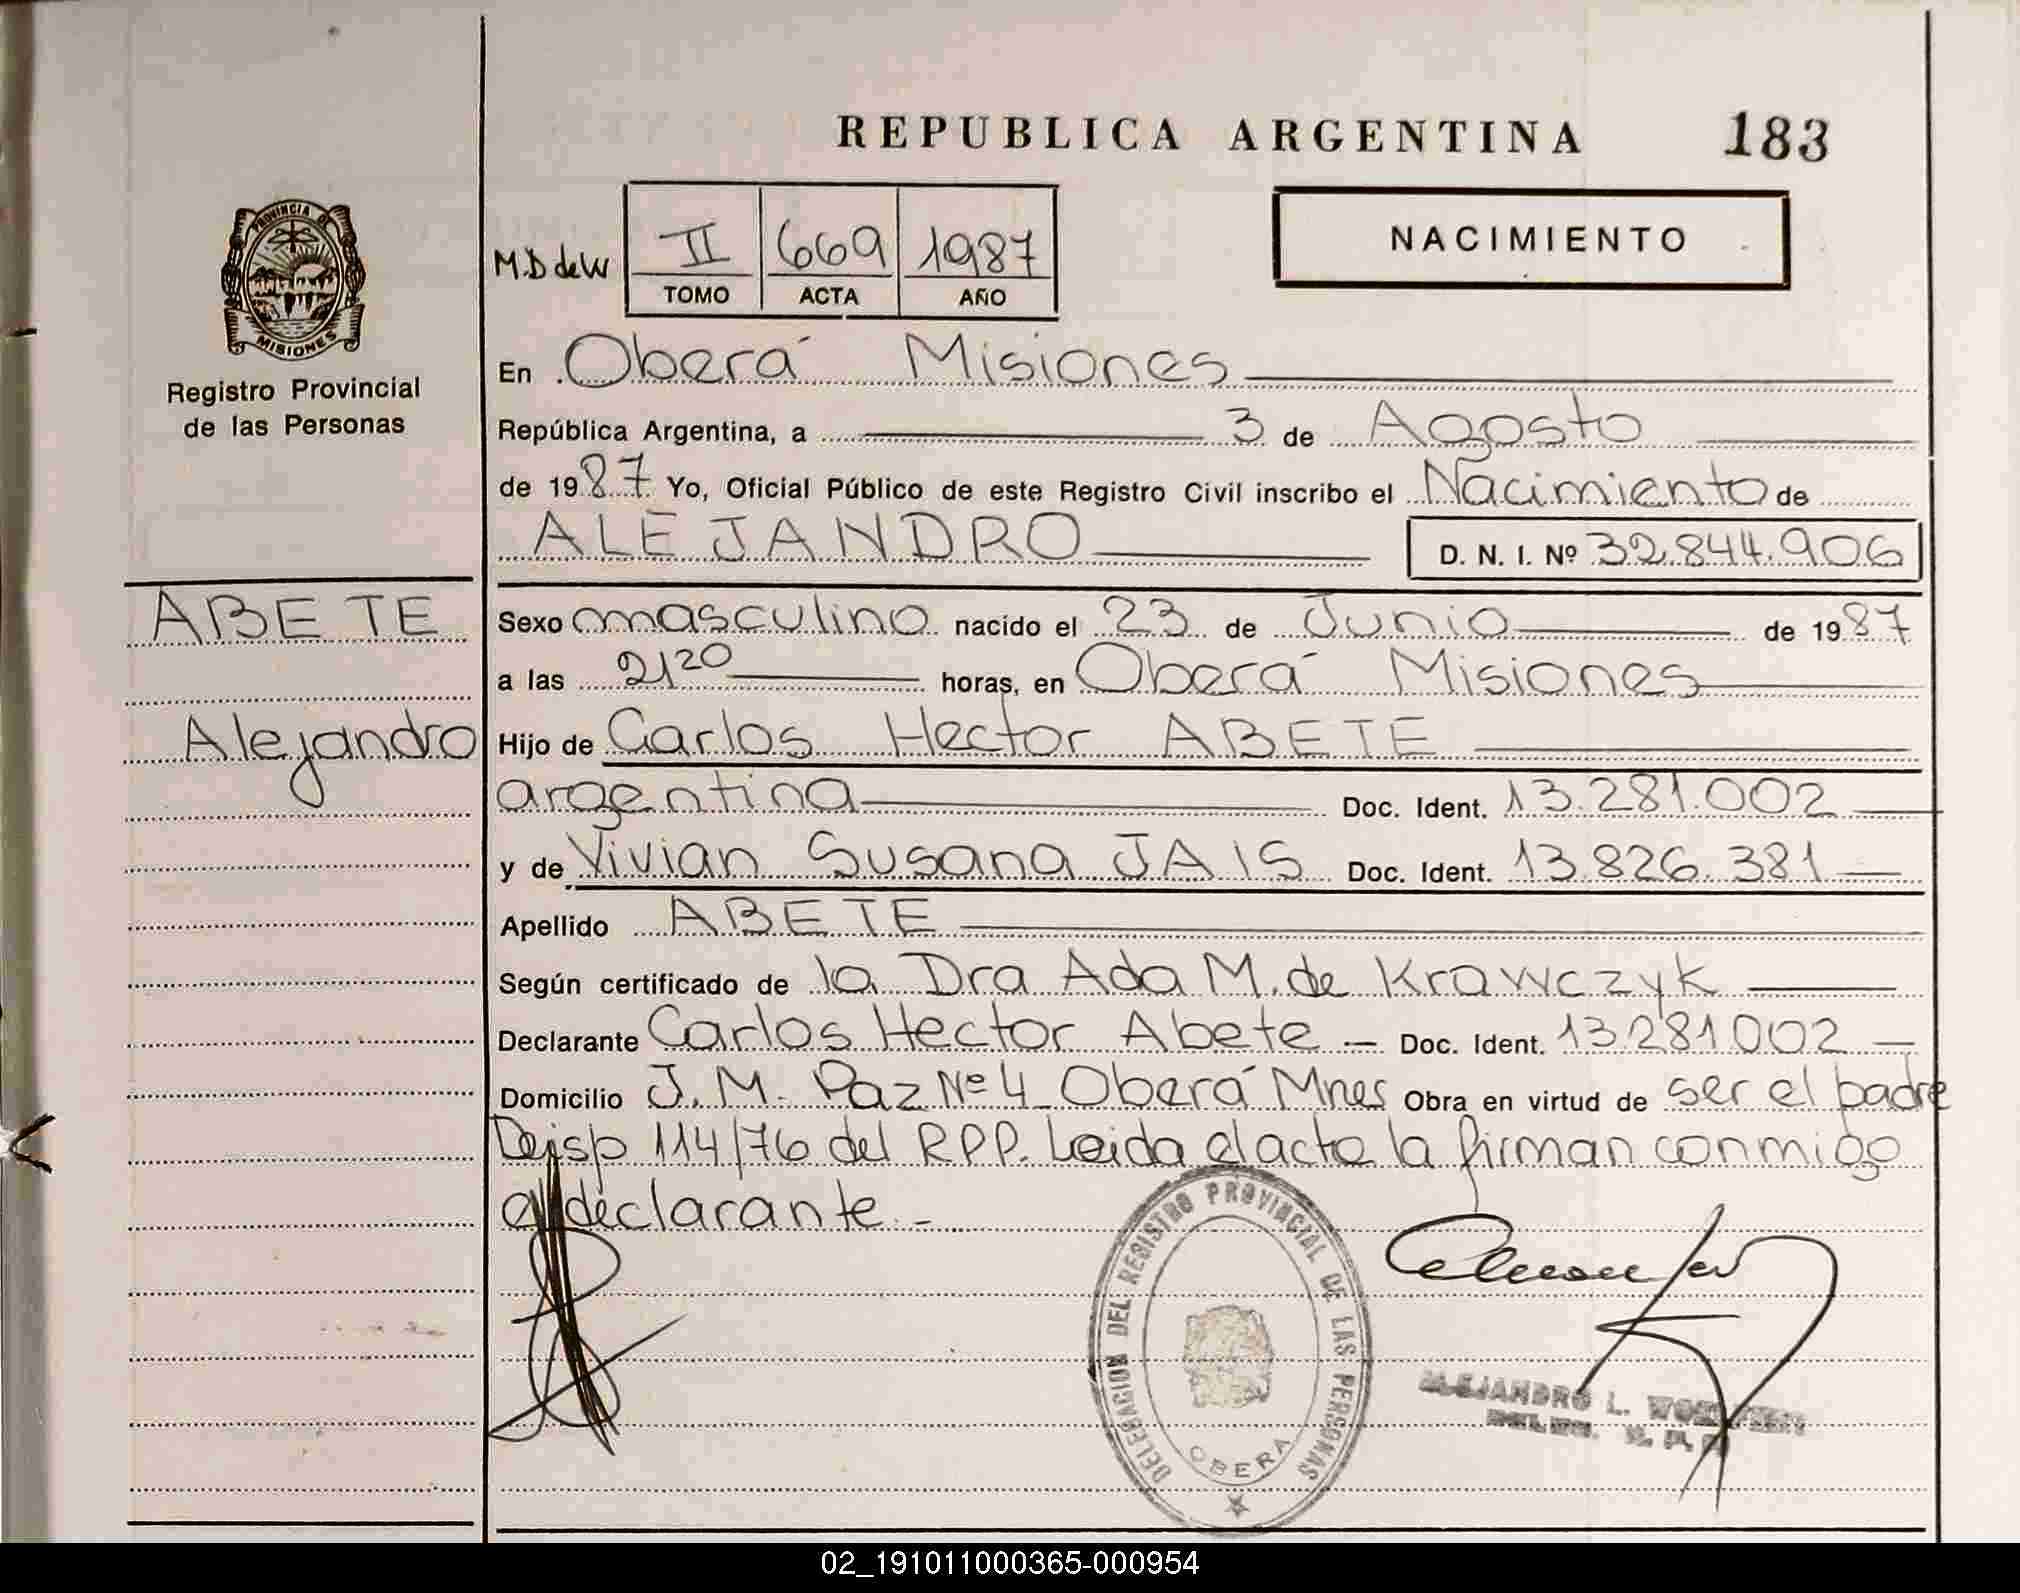 REPUBLICA ARGENTINA 183
PROVINCIA DE
MISIONES
Registro Provincial
de las Personas
M.D de W
II 669 1987
TOMO ACTA AÑO
NACIMIENTO
En Oberá Misiones
República Argentina, a 3 de Agosto
de 1987 Yo, Oficial Público de este Registro Civil inscribo el Nacimiento de
ALEJANDRO D. N. I. Nº 32.844.906
ABETE
Alejandro
Sexo masculino nacido el 23 de Junio de 1987
a las 2120 horas, en Oberá Misiones
Hijo de Carlos Hector ABETE
argentina Doc. Ident. 13.281.002
y de Vivian Susana JAIS Doc. Ident. 13.826.381
Apellido ABETE
Según certificado de la Dra Ada M. de Krawczyk
Declarante Carlos Hector Abete Doc. Ident. 13.281.002
Domicilio J. M. Paz Nº 4 Oberá Mnes Obra en virtud de ser el padre
Deisp 114/76 del RPP. Leida el acta la firman conmigo
el declarante.-
DELEGACION DEL REGISTRO PROVINCIAL DE LAS PERSONAS
OBERA
ALEJANDRO L.
02_191011000365-000954